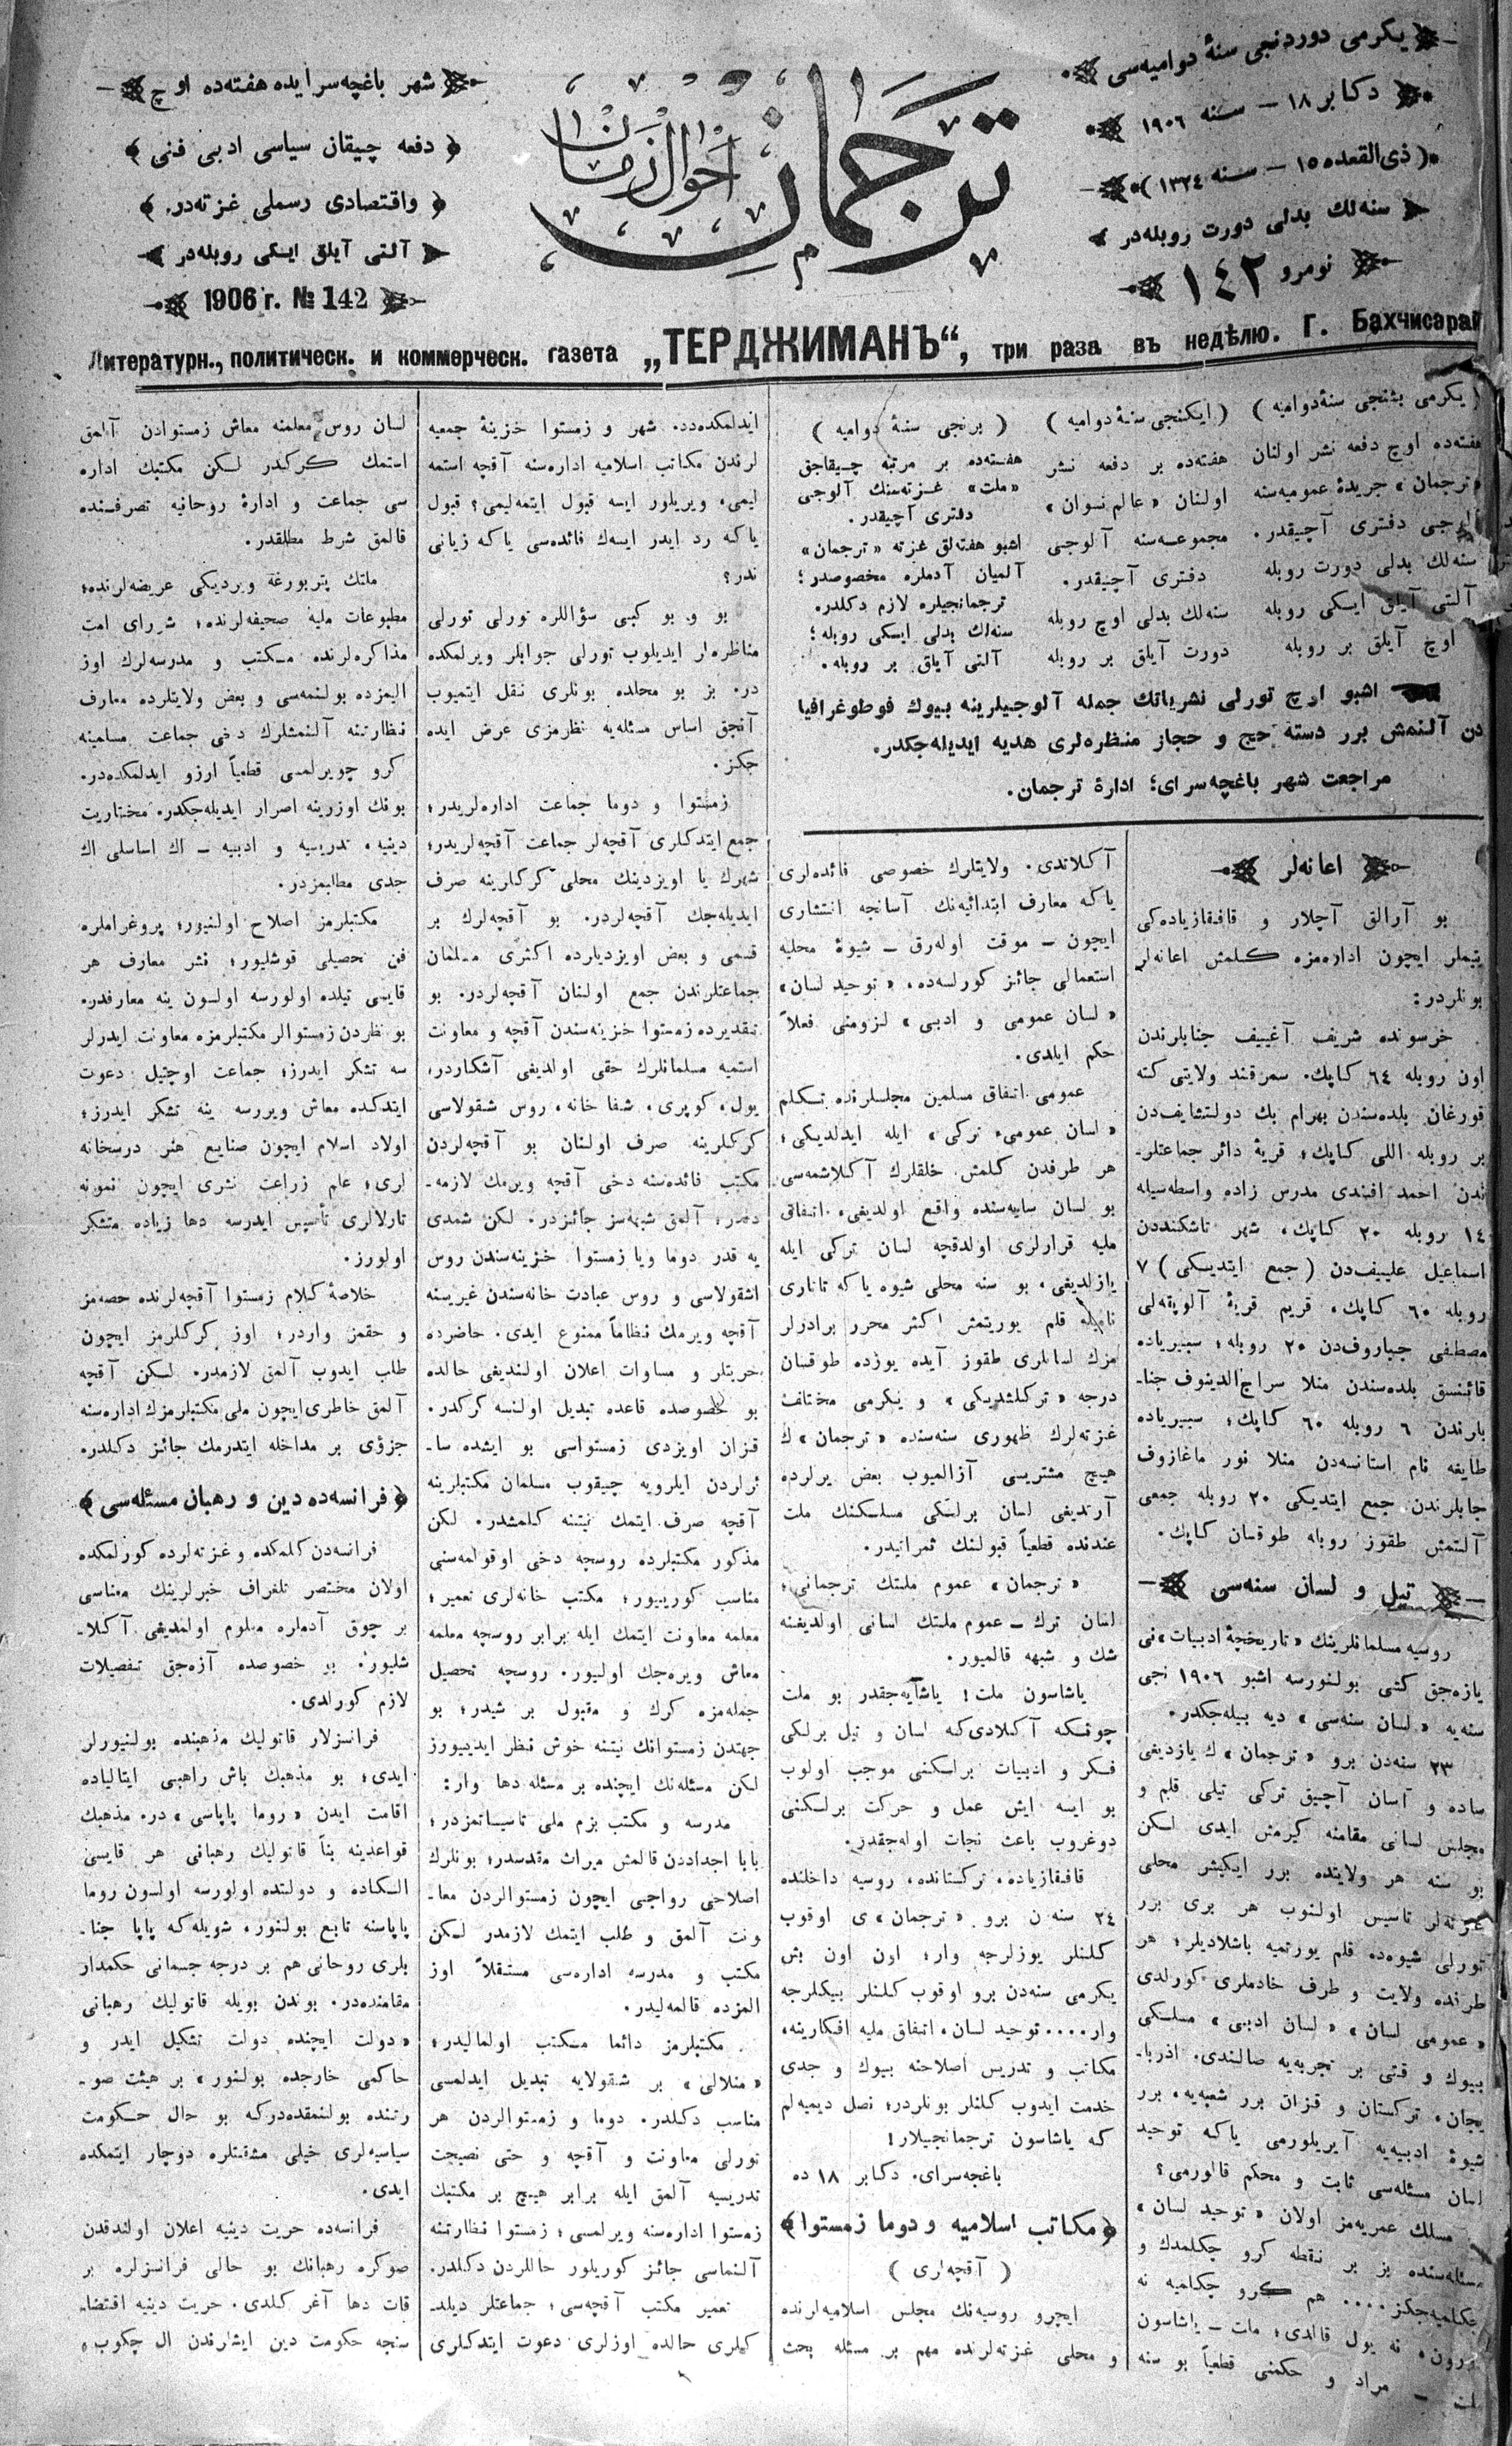 يكرمى دوردنجى سنهٔ دواميه‌سى
دكابر ١٨ — سنه ١٩٠٦
(ذى القعده ١٥ — سنه ١٣٢٤)
سنه‌لك بدلى دورت روبله‌در
نومرو ١٤٢
ترجمان
احوال زمان
شهر باغچه‌سرايده هفته‌ده اوچ
دفعه چيقان سياسى ادبى فنى
واقتصادى رسملى غزته‌در.
آلتى آيلق ايكى روبله‌در
1906 г. № 142
Литературн., политическ. и коммерческ. газета „ТЕРДЖИМАНЪ“, три раза въ недѣлю. Г. Бахчисарай
( يكرمى بشنجى سنهٔ دواميه )
هفته‌ده اوچ دفعه نشر اولنان
« ترجمان » جريدهٔ عموميه‌سنه
آلوجى دفترى آچيقدر.
سنه‌لك بدلى دورت روبله
آلتى آيلق ايكى روبله
اوچ آيلق بر روبله
( ايكنجى سنهٔ دواميه )
هفته‌ده بر دفعه نشر
اولنان « عالم نسوان »
مجموعه‌سنه آلوجى
دفترى آچيقدر.
سنه‌لك بدلى اوچ روبله
دورت آيلق بر روبله
( برنجى سنهٔ دواميه )
هفته‌ده بر مرتبه چيقاجق
« ملت » غزته‌سنك آلوجى
دفترى آچيقدر.
اشبو هفته‌لق غزته « ترجمان »
آلميان آدملره مخصوصدر؛
ترجمانجيلره لازم دكلدر.
سنه‌لك بدلى ايكى روبله؛
آلتى آيلق بر روبله.
اشبو اوچ تورلى نشرياتك جمله آلوجيلرينه بيوك فوطوغرافيا
دن آلنمش برر دسته حج و حجاز منظره‌لرى هديه ايديله‌جكدر.
مراجعت شهر باغچه‌سراى؛ ادارهٔ ترجمان.
اعانه‌لر
بو آرالق آچلار و قافقازياده‌كى
يتيملر ايچون اداره‌مزه كلمش اعانه‌لر
بونلردر:
خرسونده شريف آغييف جنابلرندن
اون روبله ٦٤ كاپك. سمرقند ولايتى كته
قورغان بلده‌سندن بهرام بك دولتشايف‌دن
بر روبله اللى كاپك؛ قريهٔ دائر جماعتلر-
ندن احمد افندى مدرس زاده واسطه‌سيله
١٤ روبله ٢٠ كاپك، شهر تاشكنددن
اسماعيل علييف‌دن ( جمع ايتديكى ) ٧
روبله ٦٠ كاپك، قريم قريهٔ آلوپقه‌لى
مصطفى جباروف‌دن ٢٠ روبله؛ سيبرياده
قائينسق بلده‌سندن منلا سراج‌الدينوف جنا-
بلرندن ٦ روبله ٦٠ كاپك؛ سيبرياده
طايغه نام استانسه‌دن منلا نور ماغازوف
جنابلرندن جمع ايتديكى ٢٠ روبله جمعى
آلتمش طقوز روبله طوقسان كاپك.
تيل و لسان سنه‌سى
روسيه مسلمانلرينك « تاريخچهٔ ادبيات »نى
يازه‌جق كشى بولنورسه اشبو ١٩٠٦ نجى
سنه‌يه « لسان سنه‌سى » ديه بيله‌جكدر.
٢٣ سنه‌دن برو « ترجمان »ك يازديغى
ساده و آسان آچيق تركى تيلى قلم و
مجلس لسانى مقامنه كيرمش ايدى لكن
بو سنه هر ولايتده برر ايكيشر محلى
غزته‌لر تاسيس اولنوب هر برى برر
تورلى شيوه‌ده قلم يورتميه باشلاديلر؛ هر
طرفده ولايت و طرف خادملرى كورلدى
« عمومى لسان » « لسان ادبى » مسلكى
بيوك و قتى بر تجربه‌يه صالندى. اذربا-
يجان، تركستان و قزان برر شعبه‌يه، برر
شيوهٔ ادبيه‌يه آيريلورمى ياكه توحيد
لسان مسئله‌سى ثابت و محكم قالورمى؟
مسلك عمريه‌مز اولان « توحيد لسان »
مسئله‌سنده بز بر نقطه كرو چكلمدك و
چكلميه‌جكز.... هم كرو چكلميه نه
اورون، نه يول قالدى؛ ملت — ياشاسون
ملت — مراد و حكمنى قطعياً بو سنه
آكلاتدى. ولايتلرك خصوصى فائده‌لرى
ياكه معارف ابتدائيه‌نك آسانجه انتشارى
ايچون — موقت اوله‌رق — شيوهٔ محليه
استعمالى جائز كورلسه‌ده، « توحيد لسان »
« لسان عمومى و ادبى » لزومنى فعلاً
حكم ايلدى.
عمومى اتفاق مسلمين مجلسلرنده تكلم
« لسان عمومىء تركى » ايله ايدلديكى؛
هر طرفدن كلمش خلقلرك آكلاشمه‌سى
بو لسان سايه‌سنده واقع اولديغى، اتفاق
مليه قرارلرى اولدقچه لسان تركى ايله
يازلديغى، بو سنه محلى شيوه ياكه تاتارى
ناميله قلم يوريتمش اكثر محرر برادرلر
مزك لسانلرى طقوز آيده يوزده طوقسان
درجه « تركلشديكى » و يكرمى مختلف
غزته‌لرك ظهورى سنه‌سنده « ترجمان »ك
هيچ مشتريسى آزالميوب بعض يرلرده
آرتديغى لسان برلكى مسلكنك ملت
عندنده قطعياً قبولنك ثمراتيدر.
« ترجمان » عموم ملتك ترجمانى؛
لسان ترك — عموم ملتك لسانى اولديغنه
شك و شبهه قالميور.
ياشاسون ملت! ياشايه‌جقدر بو ملت
چونكه آكلادى كه لسان و تيل برلكى
فكر و ادبيات برلكنى موجب اولوب
بو ايسه ايش عمل و حركت برلكنى
دوغروب باعث نجات اوله‌جقدر.
قافقازياده، تركستانده، روسيه داخلنده
٢٤ سنه‌دن برو « ترجمان »ى اوقوب
كلنلر يوزلرجه وار؛ اون اون بش
يكرمى سنه‌دن برو اوقوب كلنلر بيكلرجه
وار.... توحيد لسان، اتفاق مليه افكارينه،
مكاتب و تدريس اصلاحنه بيوك و جدى
خدمت ايدوب كلنلر بونلردر؛ نصل ديميه‌لم
كه ياشاسون ترجمانجيلار!
باغچه‌سراى. دكابر ١٨ ده
﴿ مكاتب اسلاميه و دوما زمستوا ﴾
( آقچه‌لرى )
ايچرو روسيه‌نك مجلس اسلاميه‌لرنده
و محلى غزته‌لرنده مهم بر مسئله بحث
ايدلمكده‌در. شهر و زمستوا خزينهٔ جمعيه
لرندن مكاتب اسلاميه اداره‌سنه آقچه استمه
ليمى، ويريلور ايسه قبول ايتمه‌ليمى؟ قبول
ياكه رد ايدر ايسه‌ك فائده‌سى ياكه زيانى
ندر؟
بو و بو كبى سؤاللره تورلى تورلى
مناظره‌لر ايديلوب تورلى جوابلر ويرلمكده
در. بز بو محلده بونلرى نقل ايتميوب
آنجق اساس مسئله‌يه نظرمزى عرض ايده
جكز.
زمستوا و دوما جماعت اداره‌لريدر؛
جمع ايتدكلرى آقچه‌لر جماعت آقچه‌لريدر؛
شهرك يا اويزدينك محلى كركلرينه صرف
ايديله‌جك آقچه‌لردر. بو آقچه‌لرك بر
قسمى و بعض اويزديلرده اكثرى مسلمان
جماعتلرندن جمع اولنان آقچه‌لردر. بو
تقديرده زمستوا خزينه‌سندن آقچه و معاونت
استميه مسلمانلرك حقى اولديغى آشكاردر.
يول، كوپرى، شفا خانه، روس شقولاسى
كركلرينه صرف اولنان بو آقچه‌لردن
مكتب فائده‌سنه دخى آقچه ويرمك لازمه-
دندر؛ آلمق شبهه‌سز جائزدر. لكن شمدى
يه قدر دوما ويا زمستوا خزينه‌سندن روس
اشقولاسى و روس عبادت خانه‌سندن غيريسنه
آقچه ويرمك نظاماً ممنوع ايدى. حاضرده
حريتلر و مساوات اعلان اولنديغى حالده
بو خصوصده قاعده تبديل اولنسه كركدر.
قزان اويزدى زمستواسى بو ايشده سا-
ئرلردن ايلرويه چيقوب مسلمان مكتبلرينه
آقچه صرف ايتمك نيتنه كلمشدر. لكن
مذكور مكتبلرده روسچه دخى اوقولمه‌سنى
مناسب كورييور؛ مكتب خانه‌لرى تعمير؛
معلمه معاونت ايتمك ايله برابر روسچه معلمه
معاش ويره‌جك اوليور. روسچه تحصيل
جمله‌مزه كرك و مقبول بر شيدر؛ بو
جهتدن زمستوانك نيتنه خوش نظر ايدييورز
لكن مسئله‌نك ايچنده بر مسئله دها وار:
مدرسه و مكتب بزم ملى تاسيساتمزدر؛
بابا اجداددن قالمش ميراث مقدسدر؛ بونلرك
اصلاحى رواجى ايچون زمستوالردن معا-
ونت آلمق و طلب ايتمك لازمدر لكن
مكتب و مدرسه اداره‌سى مستقلاً اوز
المزده قالمه‌ليدر.
مكتبلرمز دائما مكتب اولماليدر؛
« منلالى » بر شقولايه تبديل ايدلمسى
مناسب دكلدر. دوما و زمستوالردن هر
تورلى معاونت و آقچه و حتى نصيحت
تدريسيه آلمق ايله برابر هيچ بر مكتبك
زمستوا اداره‌سنه ويرلمسى؛ زمستوا نظارتنه
آلنماسى جائز كوريلور حاللردن دكلدر.
تعمير مكتب آقچه‌سى؛ جماعتلر ديلد-
كلرى حالده اوزلرى دعوت ايتدكلرى
لسان روس معلمنه معاش زمستوادن آلمق
استمك كركدر لكن مكتبك اداره
سى جماعت و ادارهٔ روحانيه تصرفنده
قالمق شرط مطلقدر.
ملتك پتربورغه ويرديكى عريضه‌لرنده؛
مطبوعات مليه صحيفه‌لرنده؛ شوراى امت
مذاكره‌لرنده مكتب و مدرسه‌لرك اوز
اليمزده بولنمه‌سى و بعض ولايتلرده معارف
نظارتنه آلنمشلرك دخى جماعت مسلمينه
كرو چويرلمسى قطعياً ارزو ايدلمكده‌در.
بونك اوزرينه اصرار ايديله‌جكدر. مختاريت
دينيه، تدريسيه و ادبيه — اك اساسلى اك
جدى مطالبمزدر.
مكتبلرمز اصلاح اولنيور؛ پروغراملره
فن تحصيلى قوشليور؛ نشر معارف هر
قايسى تيلده اولورسه اولسون ينه معارفدر.
بو نظردن زمستوالر مكتبلرمزه معاونت ايدرلر
سه تشكر ايدرز؛ جماعت اوچتيل دعوت
ايتدكده معاش ويررسه ينه تشكر ايدرز؛
اولاد اسلام ايچون صنايع هنر درسخانه
لرى؛ علم زراعت نشرى ايچون نمونه
تارلالرى تأسيس ايدرسه دها زياده متشكر
اولورز.
خلاصهٔ كلام زمستوا آقچه‌لرنده حصه‌مز
و حقمز واردر؛ اوز كركلرمز ايچون
طلب ايدوب آلمق لازمدر. لكن آقچه
آلمق خاطرى ايچون ملى مكتبلرمزك اداره‌سنه
جزؤى بر مداخله ايتدرمك جائز دكلدر.
﴿ فرانسه‌ده دين و رهبان مسئله‌سى ﴾
فرانسه‌دن كلمكده و غزته‌لرده كورلمكده
اولان مختصر تلغراف خبرلرينك معناسى
بر چوق آدملره معلوم اولمديغى آكلا-
شليور. بو خصوصده آزه‌جق تفصيلات
لازم كورلدى.
فرانسزلار قاتوليك مذهبنده بولنيورلر
ايدى؛ بو مذهبك باش راهبى ايتالياده
اقامت ايدن « روما پاپاسى » در. مذهبك
قواعدينه بناً قاتوليك رهبانى هر قايسى
الكاده و دولتده اولورسه اولسون روما
پاپاسنه تابع بولنور، شويله كه پاپا جنا-
بلرى روحانى هم بر درجه جسمانى حكمدار
مقامنده‌در. بوندن بويله قاتوليك رهبانى
« دولت ايچنده دولت تشكيل ايدر و
حاكمى خارجده بولنور » بر هيئت صو-
رتنده بولنمقده‌دركه بو حال حكومت
سياسيه‌لرى خيلى مشقتلره دوچار ايتمكده
ايدى.
فرانسه‌ده حريت دينيه اعلان اولندقدن
صوكره رهبانك بو حالى فرانسزلره بر
قات دها آغر كلدى. حريت دينيه اقتضا-
سنجه حكومت دين ايشلرندن ال چكوب،